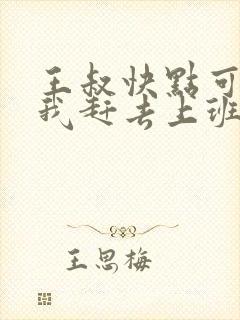 王叔快點可
我赶去上班
王思梅